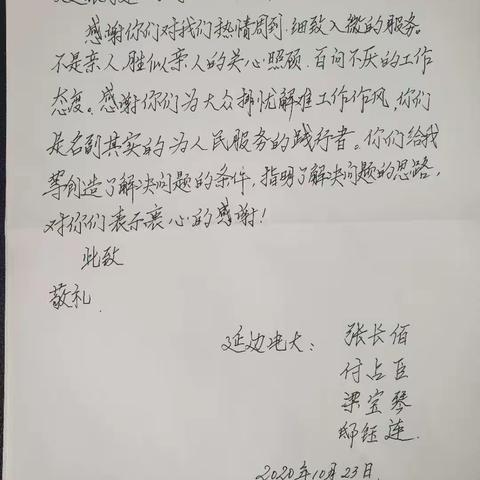 感谢你们对我们热情周到.细致入微的服务.
不是亲人胜似亲人的关心照顾.百问不厌的工作
态度。感谢你们为大众排忧解难工作作风,你们
是名副其实的为人民服务的践行者。你们给我
等创造了解决问题的条件,指明了解决问题的思路,
对你们表示衷心的感谢!
此致
敬礼.
延边电大: 张长佰
付占臣
梁宝琴
邸钰莲.
2020年10月23日.